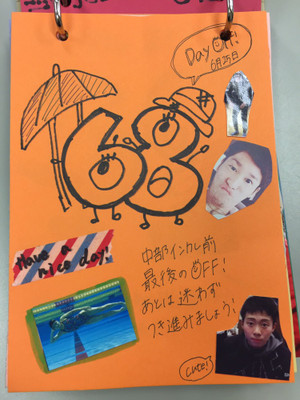 Day Off!
6月25日
68
Have a
nice day!
中部インカレ前
最後のOFF!
あとは迷わず
つき進みましょう!
cute!